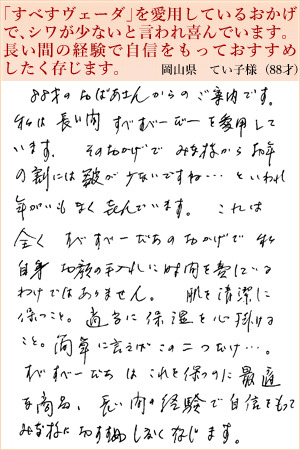 「すべすヴェーダ」を愛用しているおかげ
で、シワが少ないと言われ喜んでいます。
長い間の経験で自信をもっておすすめ
したく存じます。　岡山県　てい子様（88才）
88才のおばあさんからのご案内です。
私は長い間すべすべーだーを愛用して
います。そのおかげでみな様からお年
の割には皺が少ないですね…といわれ
年がいもなく喜んでいます。これは
全くすべすべーだあのおかげで私
自身お顔の手入れに時間を費している
わけではありません。肌を清潔に
保つこと。適当に保湿を心掛ける
こと。簡単に言えばこの二つだけ…。
すべすべーだあはこれを保つのに最適
な商品、長い間の経験で自信をもって
みな様におすすめしたく存じます。